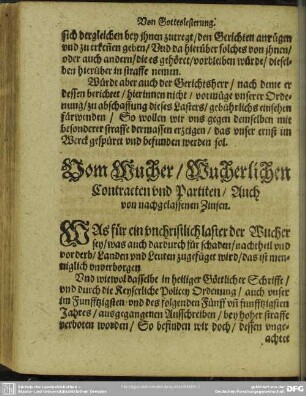 Von Gotteslesterung.
sich dergleichen bey jhnen zutregt / den Gerichten anrügen
vnd zu erkeñen geben / Vnd da hierüber solches von jhnen /
oder auch andern / die es gehöret / vorbleiben würde / diesel-
ben hierüber in straffe nemen.
Würde aber auch der Gerichtsherr / nach deme er
dessen berichtet / hierinnen nicht / vormüge vnserer Orde-
nung / zu abschaffung dieses Lasters / gebührlichs einsehen
fürwenden / So wollen wir vns gegen demselben mit
besonderer straffe dermassen erzeigen / das vnser ernst im
Werck gespüret vnd befunden werden sol.
Vom Wucher / Wucherlichen
Contracten vnd Partiten / Auch
von nachgelassenen Zinsen.
WAs für ein vnchristlich laster der Wucher
sey / was auch dardurch für schaden / nachtheil vnd
vorderb / Landen vnd Leuten zugefüget wird / das ist men-
niglich vnvorborgen
Vnd wiewol dasselbe in heiliger Göttlicher Schrifft /
vnd durch die Keyserliche Policey Ordenung / auch vnser
im Funfftzigsten vnd des folgenden Fünff vñ funfftzigsten
Jahres / ausgegangenen Ausschreiben / bey hoher straffe
verboten worden / So befinden wir doch / dessen vnge-
achtet